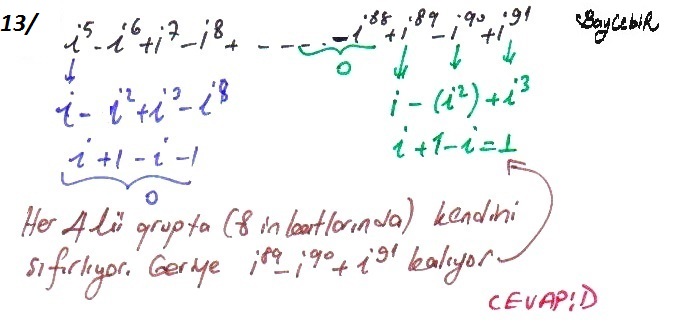 13/ i⁵-i⁶+i⁷-i⁸+ - - - - - i⁸⁸+i⁸⁹-i⁹⁰+i⁹¹ BayCebiR
0
i- i²+i³-i⁸ i-(i²)+i³
i+1-i-1 i+1-i=1
0
Her 4 lü grupta (8 in katlarında) kendini
sıfırlıyor. Geriye i⁸⁹-i⁹⁰+i⁹¹ kalıyor
CEVAP:D